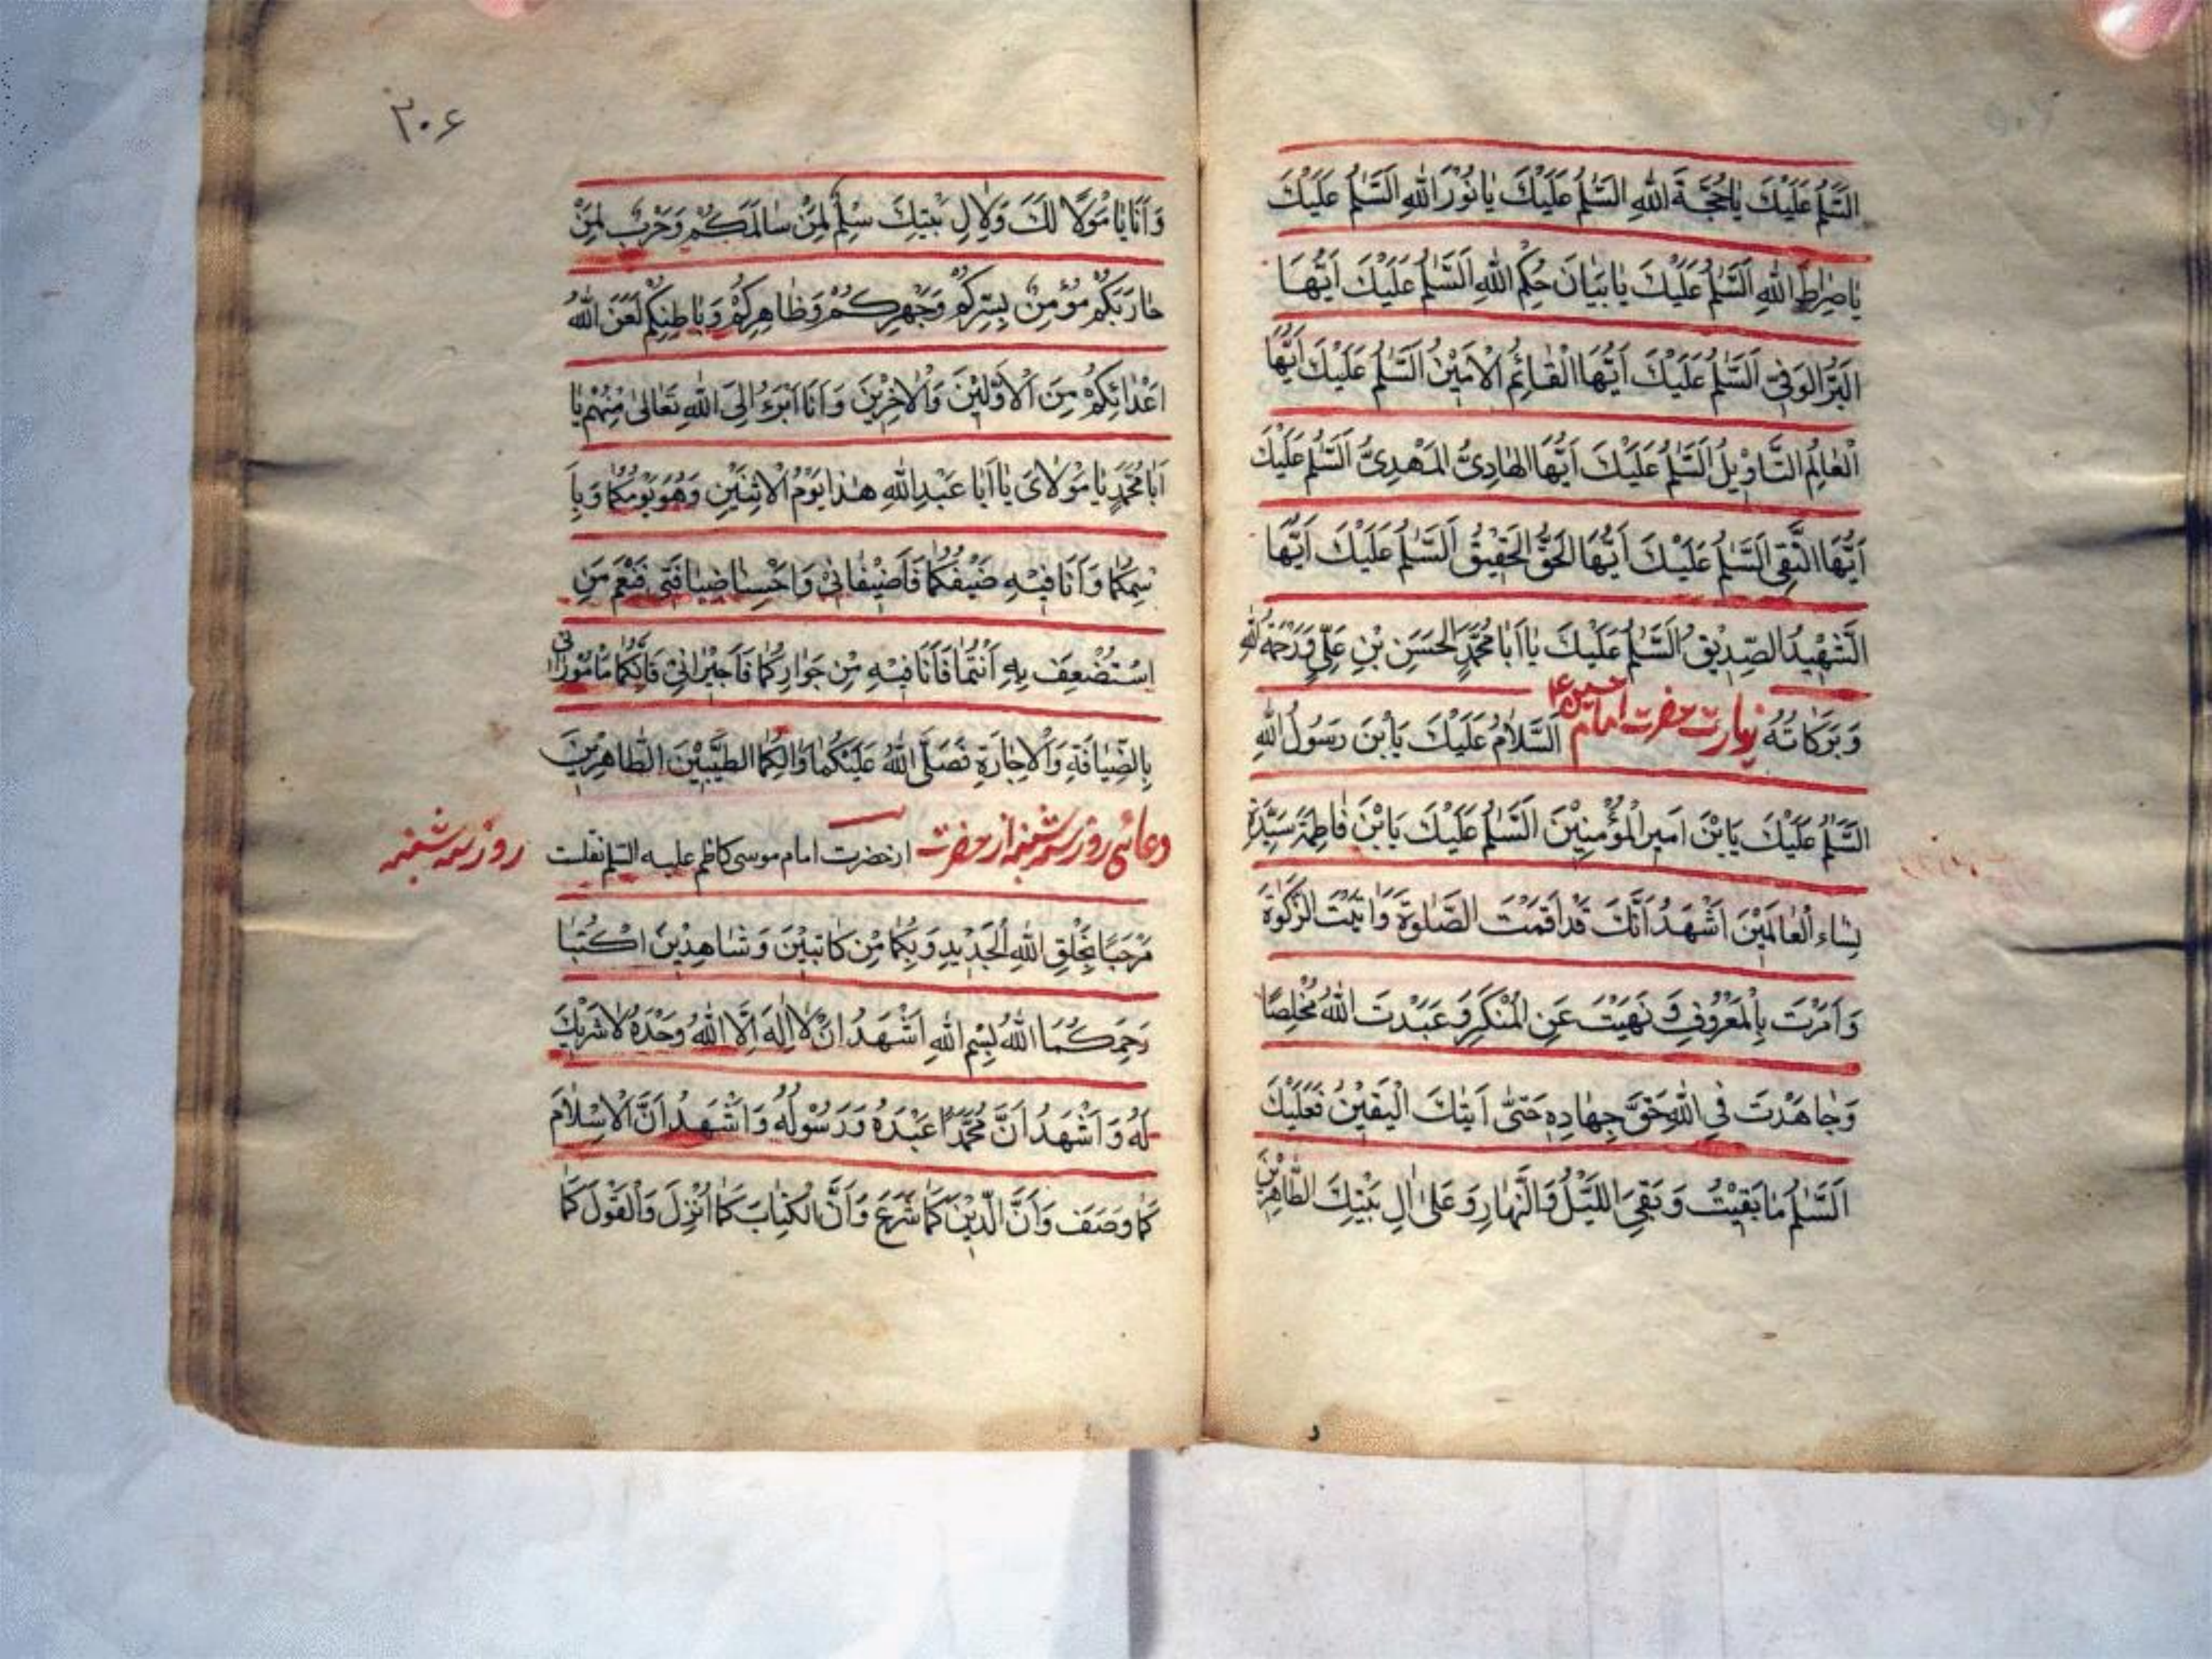 اَلسَّلٰمُ عَلَيْكَ يٰاحُجَّةَ اللهِ السَّلٰمُ عَلَيْكَ يٰا نُوْرَ اللهِ اَلسَّلٰمُ عَلَيْكَ
يٰاصِرٰطَ اللهِ اَلسَّلٰمُ عَلَيْكَ يٰا بَيٰانَ حُكْمِ اللهِ اَلسَّلٰمُ عَلَيْكَ اَيُّهَا
الْبَرُّ الْوَفِىُّ اَلسَّلٰمُ عَلَيْكَ اَيُّهَا الْقٰائِمُ الْاَمِيْنُ اَلسَّلٰمُ عَلَيْكَ اَيُّهَا
الْعٰالِمُ التَّاوِيْلَ اَلسَّلٰمُ عَلَيْكَ اَيُّهَا الهٰادِىُّ المَهْدِىُّ اَلسَّلٰمُ عَلَيْكَ
اَيُّهَا النَّقِى اَلسَّلٰمُ عَلَيْكَ اَيُّهَا الحَقُّ الحَقِيْقُ اَلسَّلٰمُ عَلَيْكَ اَيُّهَا
الشَّهِيْدُ الصِّدِيْقُ اَلسَّلٰمُ عَلَيْكَ يٰا اَبٰا مُحَمَّدٍ الحَسَنِ بْنِ عَلِىٍّ وَرَحْمَةُ اللهِ
وَ بَرَكٰاتُهُ زيارت حضرت امام حسين ع اَلسَّلٰامُ عَلَيْكَ يَابْنَ رَسُوْلِ اللهِ
اَلسَّلٰمُ عَلَيْكَ يَابْنَ اَمِيرِ الْمُؤْمِنِيْنَ اَلسَّلٰمُ عَلَيْكَ يَابْنَ فٰاطِمَةَ سَيِّدَةِ
نِسٰاءِ الْعٰالَمِيْنَ اَشْهَدُ اَنَّكَ قَدْ اَقَمْتَ الصَّلٰوةَ وَاٰتَيْتَ الزَّكٰوةَ
وَ اَمَرْتَ بِالْمَعْرُوْفِ وَ نَهَيْتَ عَنِ الْمُنْكَرِ وَ عَبَدْتَ اللهَ مُخْلِصًا
وَجٰاهَدْتَ فِى اللهِ حَقَّ جِهٰادِهِ حَتّٰى اَيتٰكَ الْيَقِيْنُ فَعَلَيْكَ
اَلسَّلٰمُ مٰا بَقِيْتُ وَ بَقِىَ اللَّيْلُ وَالنَّهٰارِ وَ عَلىٰ اٰلِ بَيْتِكَ الطّٰاهِرِيْنَ
٢٠۶
وَ اَنَا يٰا مَوْلٰا لَكَ وَلِاٰلِ بَيْتِكَ سِلْمٌ لِمَنْ سٰالَمَكُمْ وَحَرْبٌ لِمَنْ
حٰارَبَكُمْ مُؤْمِنٌ بِسِرِّكُمْ وَجَهْرِكُمْ وَظٰاهِرِكُمْ وَبٰاطِنِكُمْ لَعَنَ اللهُ
اَعْدٰائَكُمْ مِنَ الْاَوَّلِيْنَ وَالْاٰخِرِيْنَ وَ اَنَا اَبْرَءُ اِلَى اللهِ تَعٰالىٰ مِنْهُمْ يٰا
اَبٰا مُحَمَّدٍ يٰا مَوْلٰاىَ يٰا اَبٰا عَبْدِ اللهِ هٰذٰا يَوْمُ الْاِثْنَيْنِ وَهُوَ يَوْمُكُمٰا وَ بِا
سْمِكُمٰا وَ اَنَا فِيْهِ ضَيْفُكُمٰا فَاَضِيْفٰانِىْ وَ اَحْسِنٰا ضِيٰافَتِى فَنِعْمَ مَنِ
اسْتُضْعِفَ بِهِ اَنْتُمٰا فَاَنَا فِيْهِ مِنْ جَوٰارِكُمٰا فَاَجِيْرٰانِىْ فَاِنَّكُمٰا مَامُوْرٰانى
بِالضِّيٰافَةِ وَالْاِجٰارَةِ فَصَلَّى اللهُ عَلَيْكُمٰا وَاٰلِكُمَا الطَّيِّبِيْنَ الطّٰاهِرِيْنَ
دعائى روز سه شنبه از حضرت از حضرت امام موسى كاظم عليه السلم نقلست روز سه شنبه
مَرْحَبًا بِخَلْقِ اللهِ الْجَدِيْدِ وَ بِكُمٰا مِنْ كٰاتِبَيْنَ وَ شٰاهِدِيْنَ اكْتُبٰا
رَحِمَكُمَا اللهُ بِسْمِ اللهِ اَشْهَدُ اَنْ لٰا اِلٰهَ اِلَّا اللهُ وَحْدَهُ لٰا شَرِيْكَ
لَهُ وَ اَشْهَدُ اَنَّ مُحَمَّدًا عَبْدُهُ وَ رَسُوْلُهُ وَ اَشْهَدُ اَنَّ الْاِسْلٰامَ
كَمٰا وَصَفَ وَ اَنَّ الدِّيْنَ كَمٰا شَرَعَ وَ اَنَّ الْكِتٰابَ كَمٰا اُنْزِلَ وَالْقَوْلَ كَمٰا